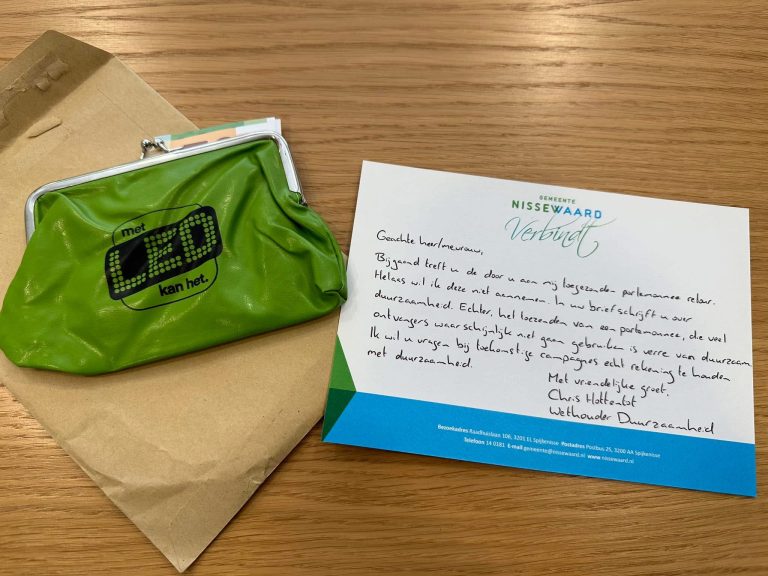 met
LED
kan het.
GEMEENTE
NISSEWAARD
Verbindt
Geachte heer/mevrouw,
Bijgaand treft u de door u aan mij toegezonden portemonnee retour.
Helaas wil ik deze niet aannemen. In uw brief schrijft u over
duurzaamheid. Echter, het toezenden van een portemonnee, die veel
ontvangers waarschijnlijk niet gaan gebruiken is verre van duurzaam
Ik wil u vragen bij toekomstige campagnes echt rekening te houden
met duurzaamheid.
Met vriendelijke groet,
Chris Hottentot
Wethouder Duurzaamheid
Bezoekadres Raadhuislaan 106, 3201 EL Spijkenisse Postadres Postbus 25, 3200 AA Spijkenisse
Telefoon 14 0181 E-mail gemeente@nissewaard.nl www.nissewaard.nl